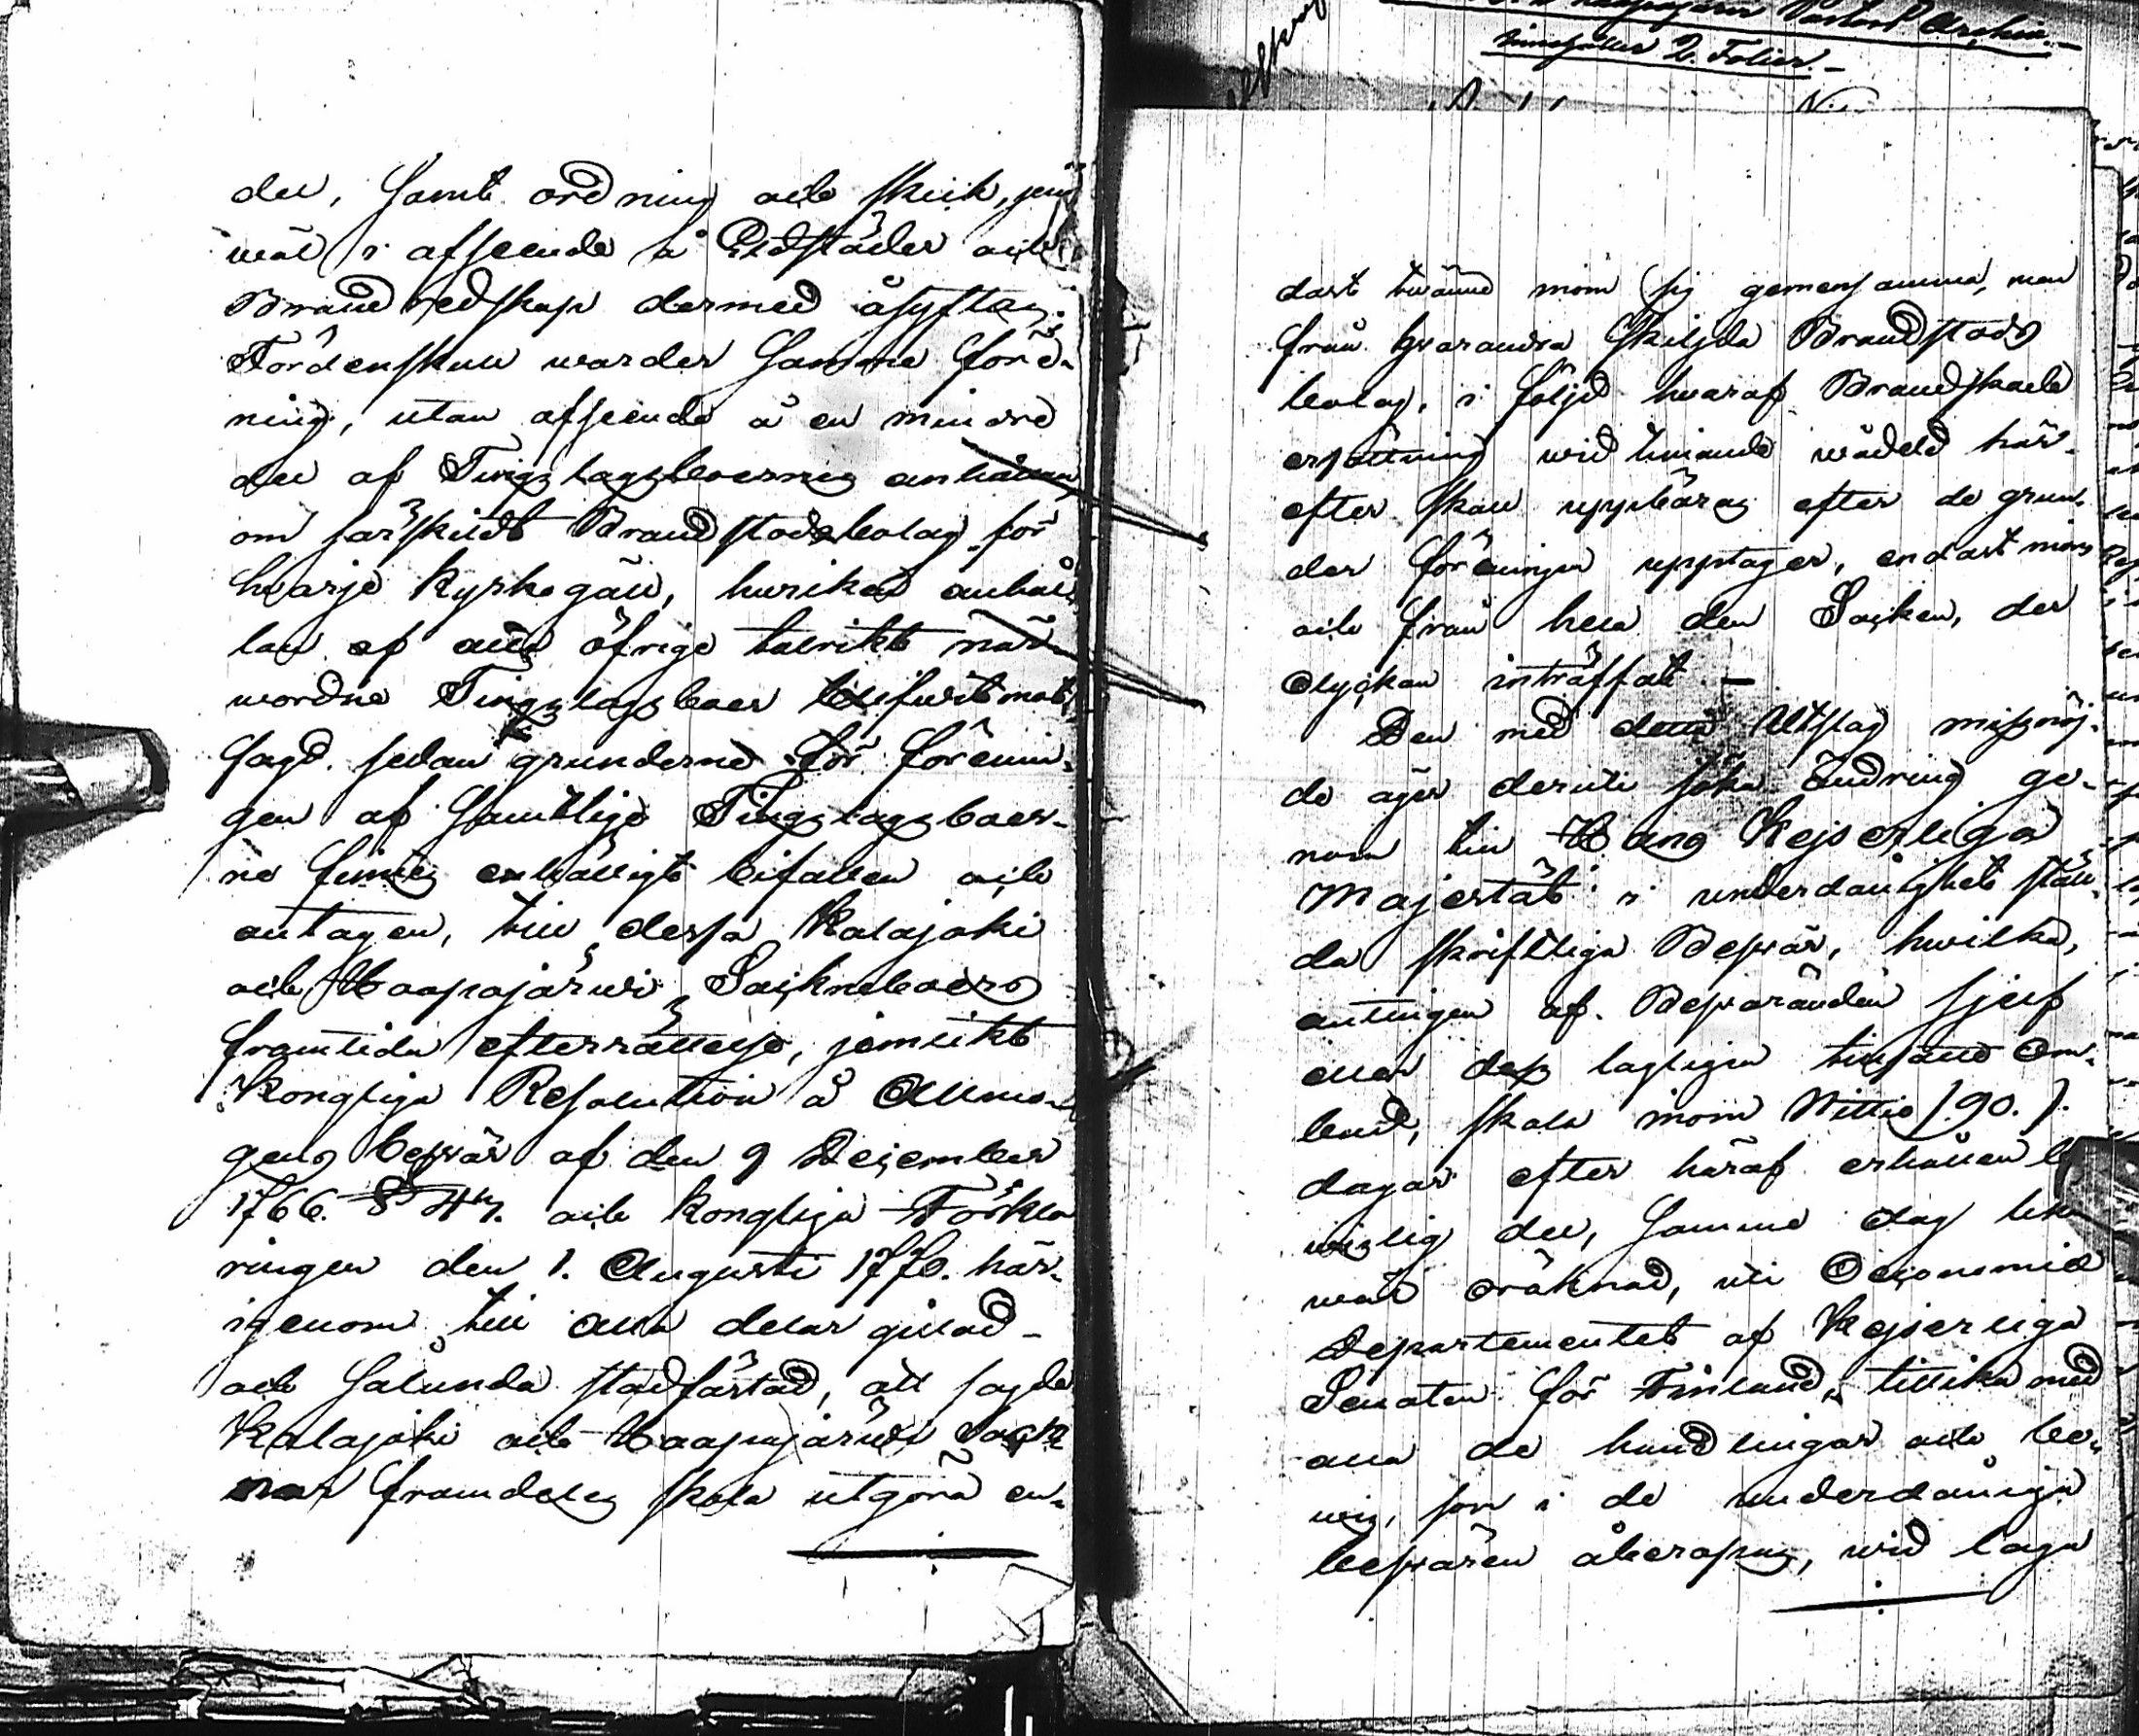 del, samt ordning och skick, jem
wäl i afseende å Eldstäder och
Brand redskap dermed åsyftas.
Fördenskull warder samme före-
ning, utan afseende å en mindre
del af Tingslagsboernes anhållan
om särskildt Brandstodsbolag för
hvarje Kyrkogäll, hvilken anhål-
lan af alla öfrige talrikt när-
wordne Tingslagsboer blifwit mot-
sagd, sedan grunderne för förenin-
gen af samtlige Tingslagsboer-
ne funnits enhälligt bifallen och
antagen, till dessa Kalajoki
och Haapajärwi Sockneboers
framtida efterrättelse, jemlikt
Kongliga Resolution å Allmo-
gens beswär af den 9 December
1766. § 47. och Kongliga Förkla
ringen den 1. Augusti 1770. här-
igenom till alla delar gillad-
och sålunda stadfästad, att sagde
Kalajoki och Haapajärwi Sock
nar framdeles skola utgöra en-
dast twänne inom sig gemensamma, men
från hvarandra skiljda Brandstods
bolag, i följd hwaraf Brandskade
ersättning wid timande wådeld här-
efter skall uppbäras efter de grun-
der föreningen upptager, endast inom
och från hela den Socken, der
Olyckan inträffat. —
Den med detta Utslag missnöj-
de äger deruti söka ändring ge-
nom till Hans Kejserliga
Majestät i underdånighet stäl-
da skriftliga Beswär, hwilka,
antingen af Beswäranden sjelf
eller dess lagligen tillsände Om-
bud, skola inom Nittio /90./
dagar efter häraf erhållen be
wislig del, samme dag lik
wäl oräknad, uti Oeconomie
Departementet af Kejserliga
Senaten för Finland, tillika med
alla de handlingar och be-
wis, som i de underdåniga
beswären åberopas, wid laga